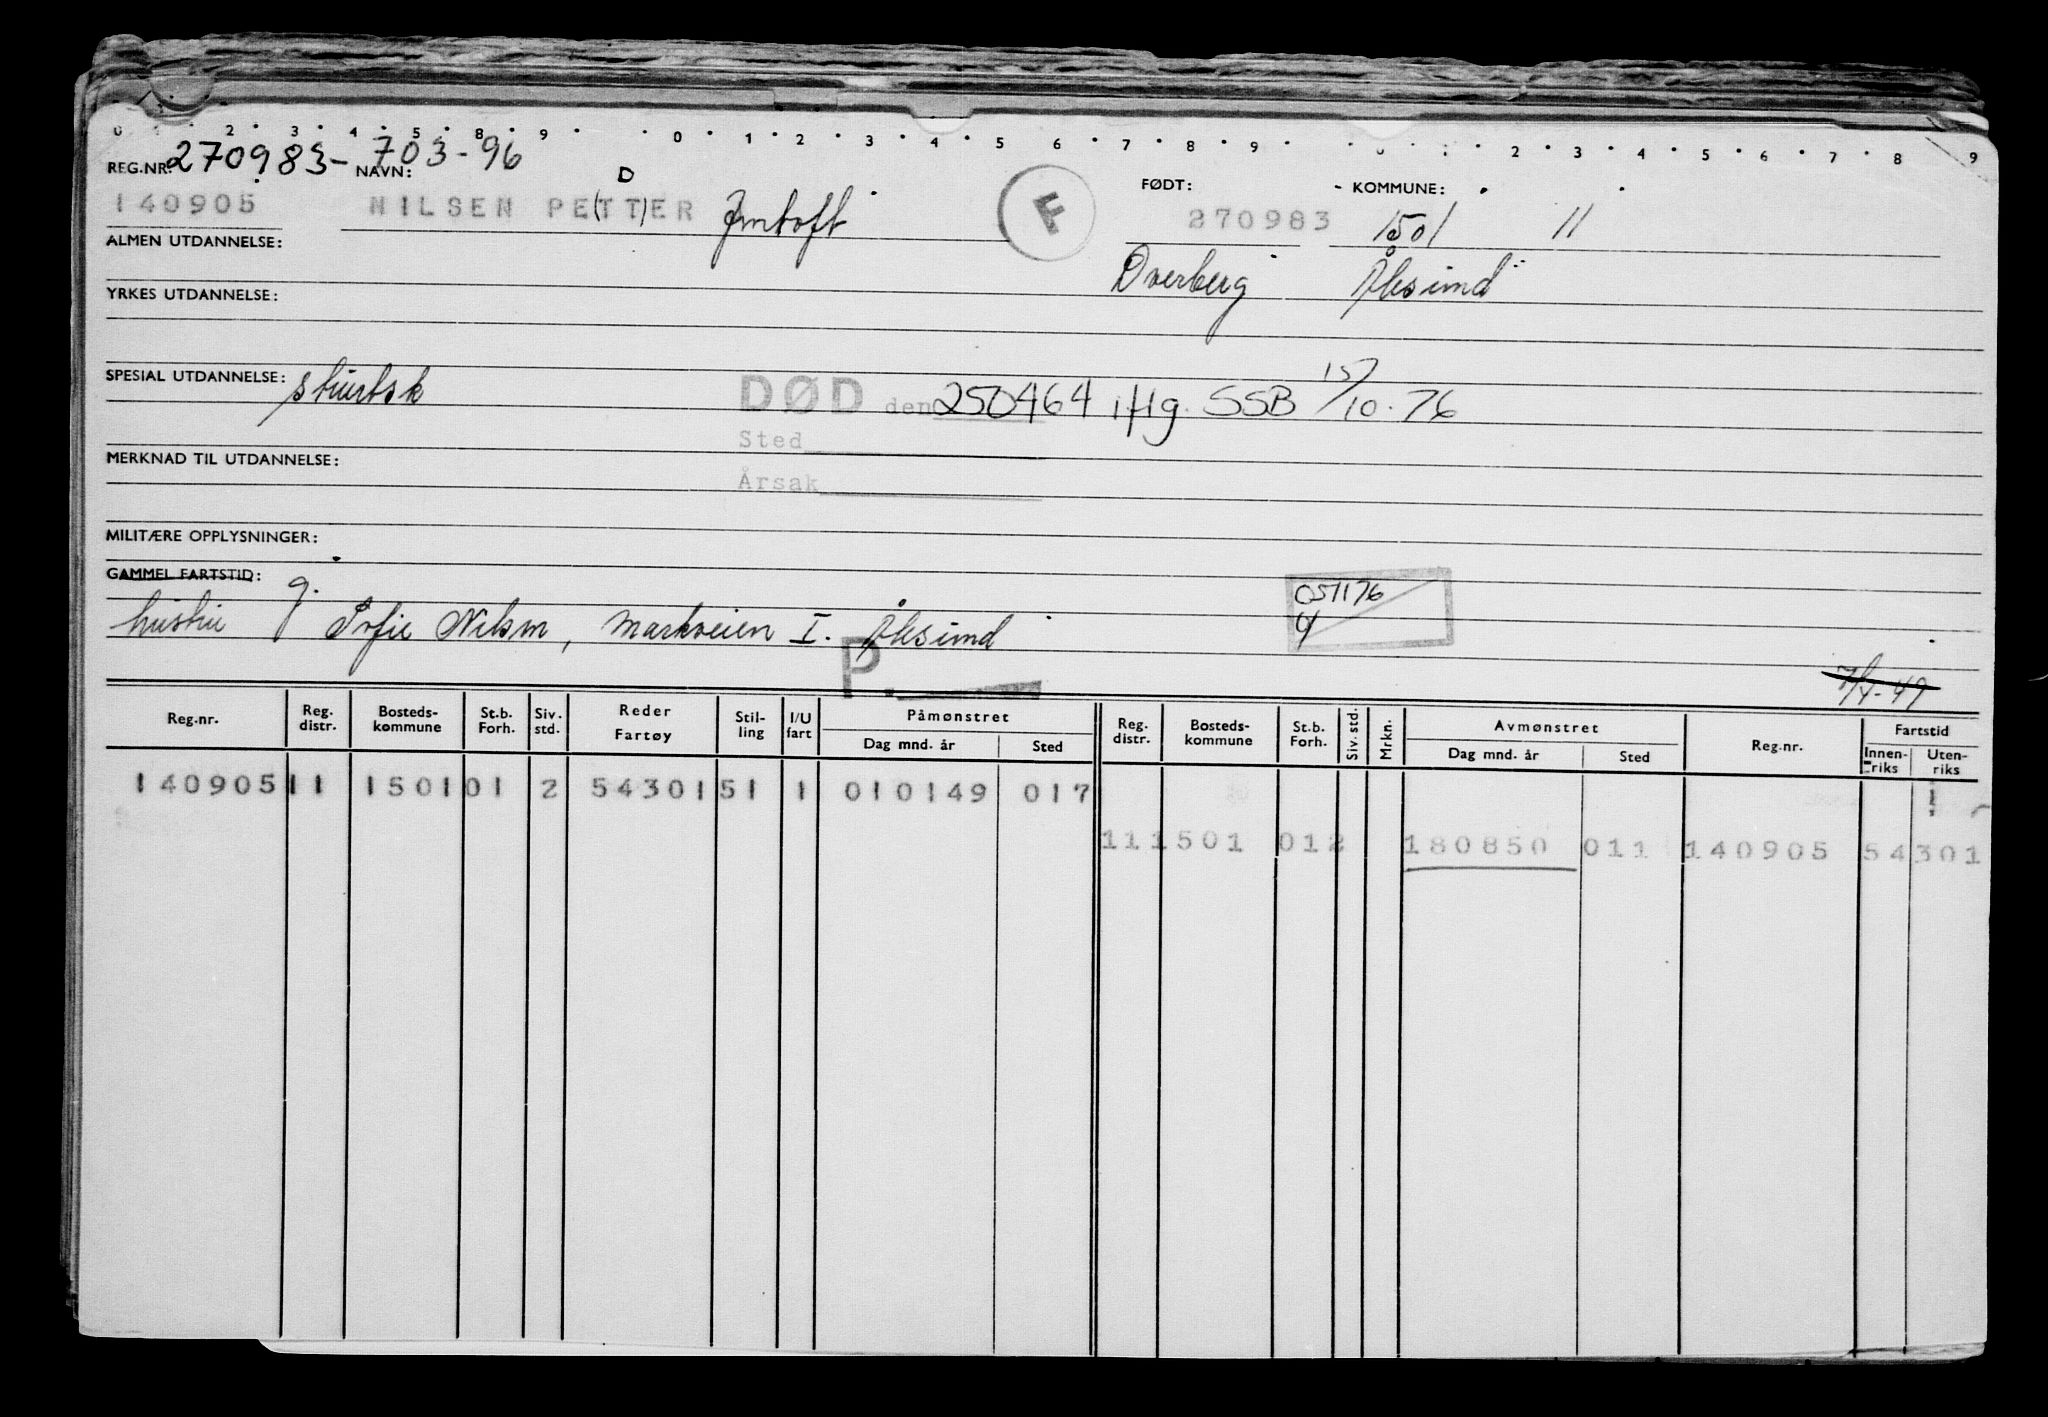 0 1 . 2 . 3 . 4 . 5 . 8 . 9 . . 0 . 1 . 2 . 3 . 4 . 5 . 6 . 7 . 8 . 9 . . 0 . 1 . 2 . 3 . 4 . 5 . 6 . 7 . 8 . 9
REG.NR. 270983- NAVN: 703-96
D
FØDT: KOMMUNE:
140905 NILSEN PE(TT)ER Jmtoft F 270983 1501 11
ALMEN UTDANNELSE:
Overberg Ålesund
YRKES UTDANNELSE:
SPESIAL UTDANNELSE: stuertsk DØD den 250464 iflg. SSB 15/10.76
Sted
MERKNAD TIL UTDANNELSE:
Årsak
MILITÆRE OPPLYSNINGER:
GAMMEL FARTSTID: g.
051176
4
hustru Sofie Nilsen, Markveien I. Ålesund
P.
7/4-49
Reg.nr. Reg. distr. Bosteds-kommune St.b. Forh. Siv. std. Reder Fartøy Stil-ling I/U fart Påmønstret Dag mnd. år Sted Reg. distr. Bosteds-kommune St.b. Forh. Siv. std. Mrkn. Avmønstret Dag mnd. år Sted Reg.nr. Fartstid Innen-riks Uten-riks
140905 11 1501 01 2 54301 51 1 010149 017
11 1501 012 180850 011 140905 54301